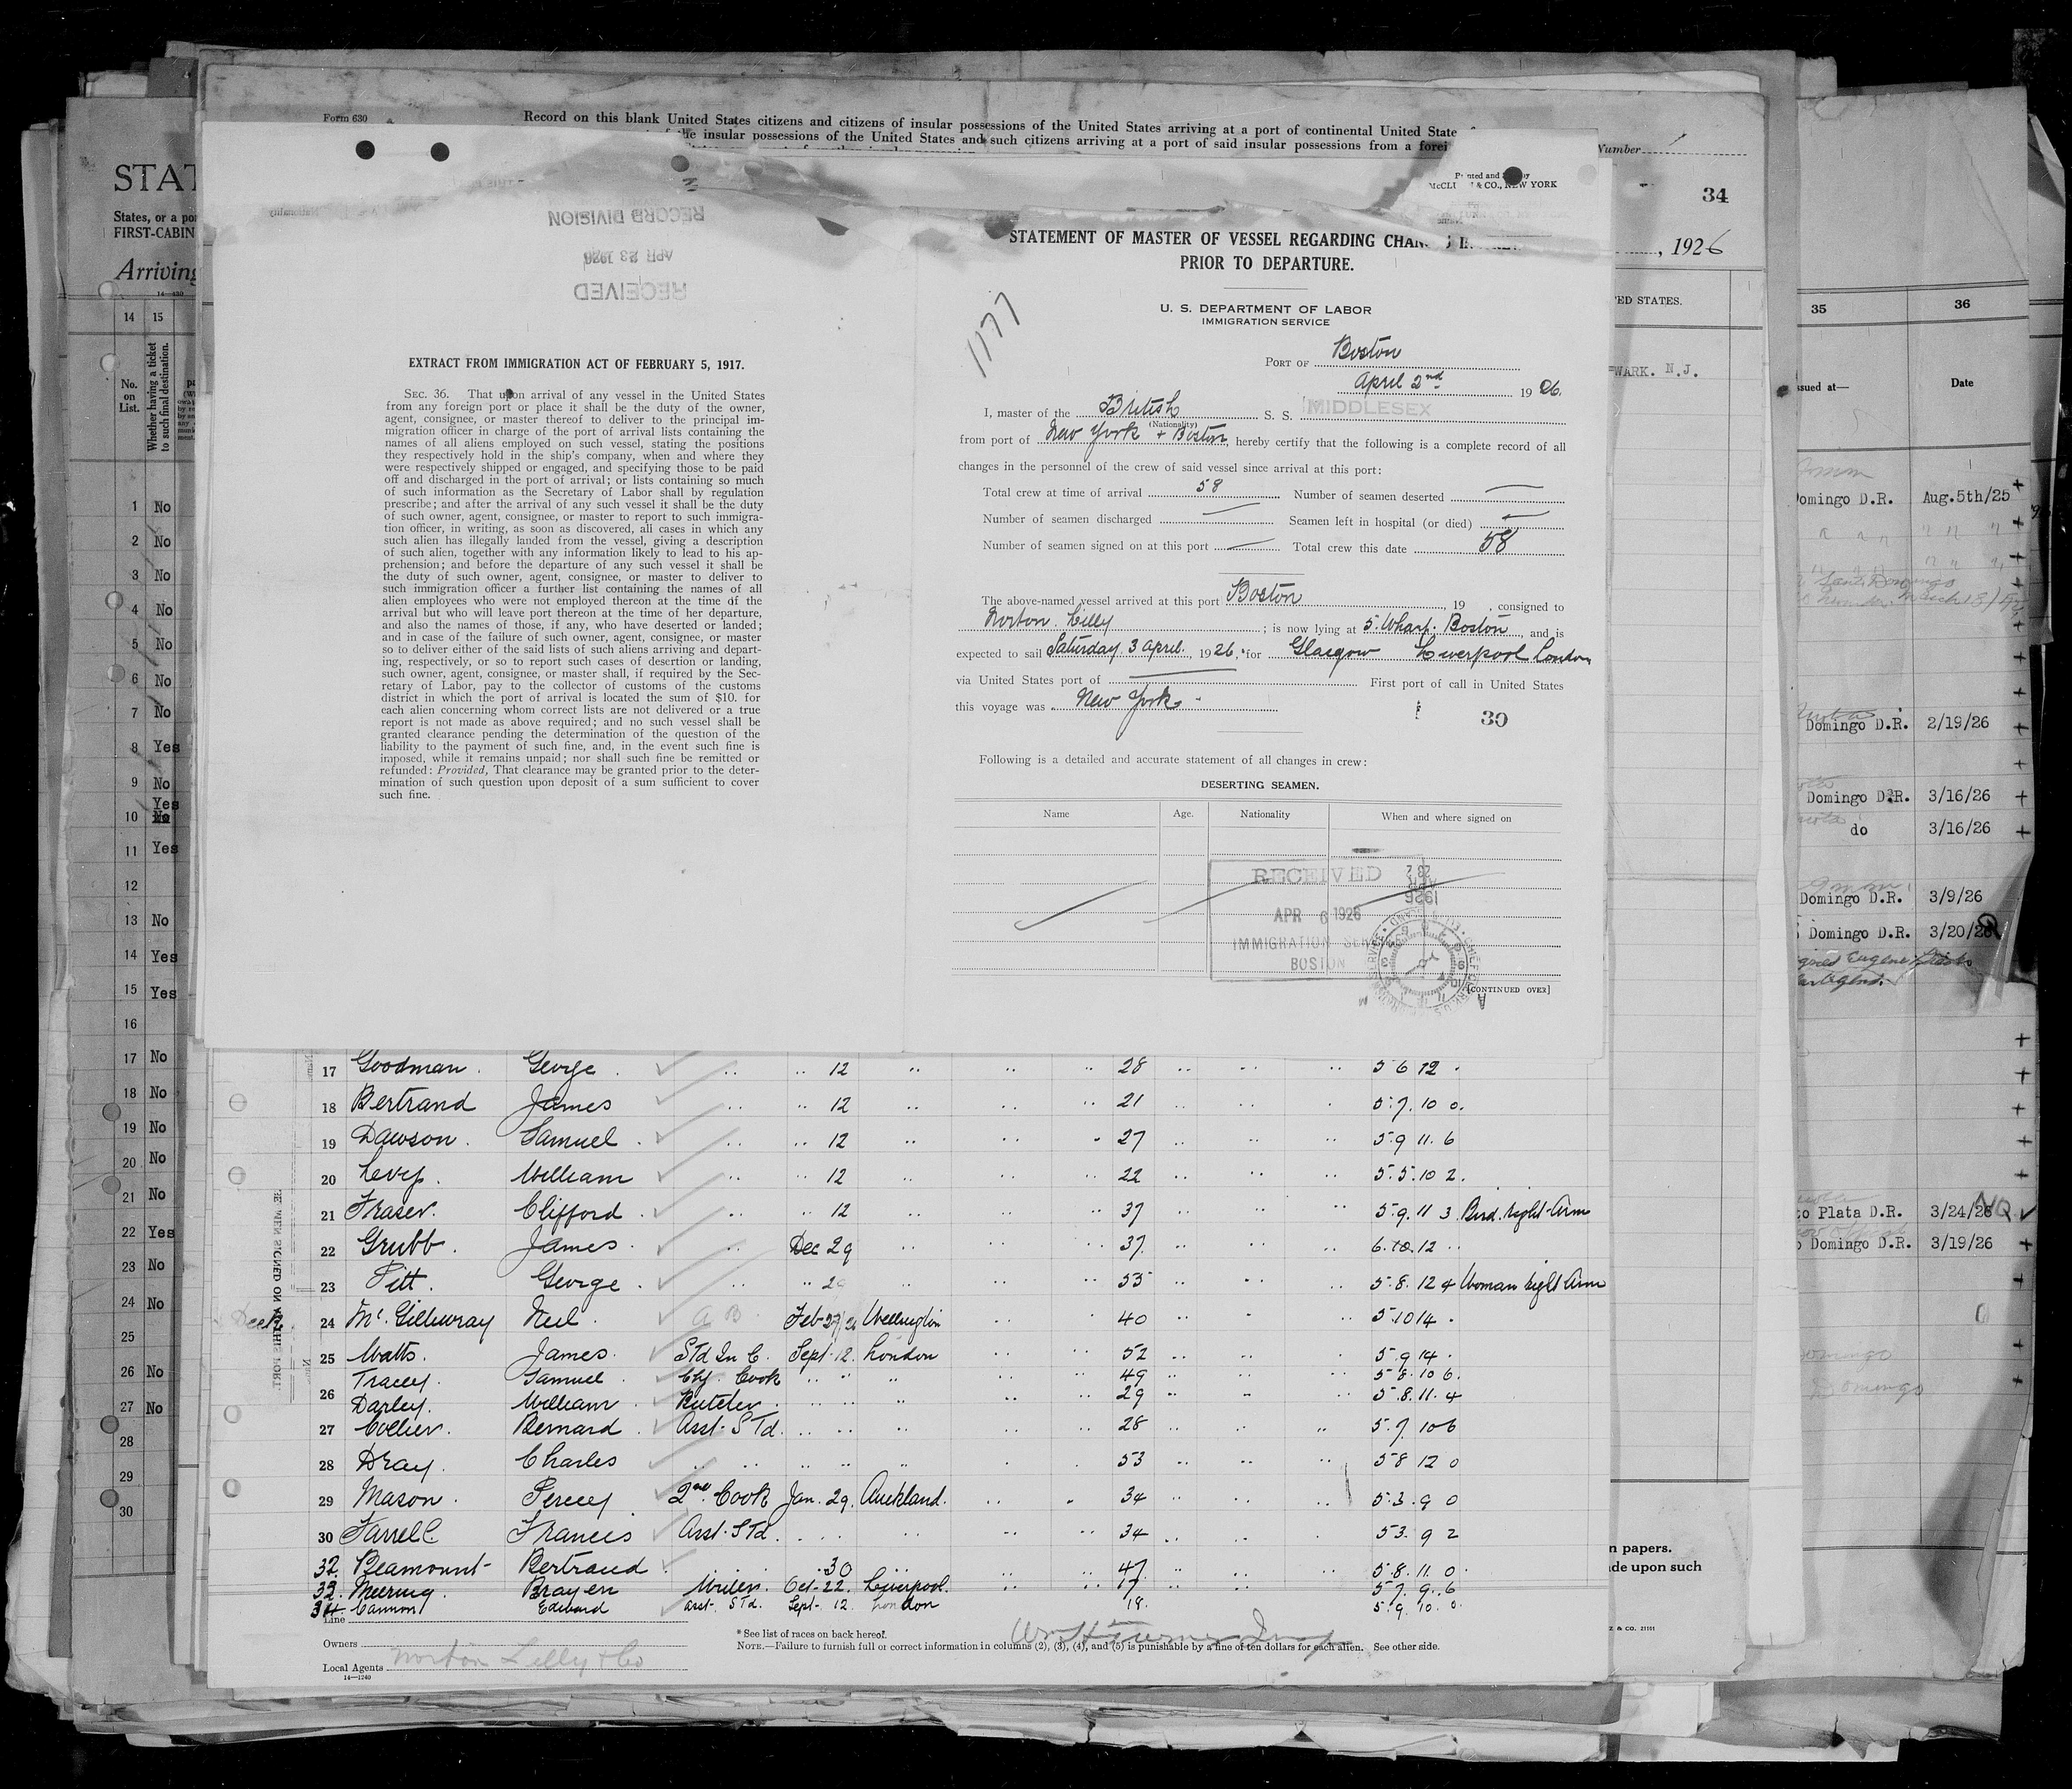 Form 630
Record on this blank United States citizens and citizens of insular possessions of the United States arriving at a port of continental United State
the insular possessions of the United States and such citizens arriving at a port of said insular possessions from a forei
Number 1
34
, 1926
ED STATES.
WARK. N.J.
STAT
States, or a po
FIRST-CABIN
Arriving
14 15
No. on List.
Whether having a ticket to such final destination.
1 No
2 No
3 No
4 No
5 No
6 No
7 No
8 Yes
9 No
Yes
10 No
11 Yes
12
13 No
14 Yes
15 Yes
16
17 No
18 No
19 No
20 No
21 No
22 Yes
23 No
24 No
25
26 No
27 No
28
29
30
RECORD DIVISION
APR 23 1926
RECEIVED
EXTRACT FROM IMMIGRATION ACT OF FEBRUARY 5, 1917.
SEC. 36. That upon arrival of any vessel in the United States
from any foreign port or place it shall be the duty of the owner,
agent, consignee, or master thereof to deliver to the principal im-
migration officer in charge of the port of arrival lists containing the
names of all aliens employed on such vessel, stating the positions
they respectively hold in the ship's company, when and where they
were respectively shipped or engaged, and specifying those to be paid
off and discharged in the port of arrival; or lists containing so much
of such information as the Secretary of Labor shall by regulation
prescribe; and after the arrival of any such vessel it shall be the duty
of such owner, agent, consignee, or master to report to such immigra-
tion officer, in writing, as soon as discovered, all cases in which any
such alien has illegally landed from the vessel, giving a description
of such alien, together with any information likely to lead to his ap-
prehension; and before the departure of any such vessel it shall be
the duty of such owner, agent, consignee, or master to deliver to
such immigration officer a further list containing the names of all
alien employees who were not employed thereon at the time of the
arrival but who will leave port thereon at the time of her departure,
and also the names of those, if any, who have deserted or landed;
and in case of the failure of such owner, agent, consignee, or master
so to deliver either of the said lists of such aliens arriving and depart-
ing, respectively, or so to report such cases of desertion or landing,
such owner, agent, consignee, or master shall, if required by the Sec-
retary of Labor, pay to the collector of customs of the customs
district in which the port of arrival is located the sum of $10. for
each alien concerning whom correct lists are not delivered or a true
report is not made as above required; and no such vessel shall be
granted clearance pending the determination of the question of the
liability to the payment of such fine, and, in the event such fine is
imposed, while it remains unpaid; nor shall such fine be remitted or
refunded: Provided, That clearance may be granted prior to the deter-
mination of such question upon deposit of a sum sufficient to cover
such fine.
& CO., NEW YORK
STATEMENT OF MASTER OF VESSEL REGARDING CHAN
PRIOR TO DEPARTURE.
U. S. DEPARTMENT OF LABOR
IMMIGRATION SERVICE
1177
PORT OF Boston
April 2nd 1926.
I, master of the British S. S. MIDDLESEX
(Nationality)
from port of New York + Boston, hereby certify that the following is a complete record of all
changes in the personnel of the crew of said vessel since arrival at this port:
Total crew at time of arrival 58 Number of seamen deserted —
Number of seamen discharged — Seamen left in hospital (or died) —
Number of seamen signed on at this port — Total crew this date 58
The above-named vessel arrived at this port Boston, 19 , consigned to
Norton. Lilly; is now lying at 5. Wharf. Boston, and is
expected to sail Saturday. 3 april., 1926, for Glasgow Liverpool London
via United States port of — First port of call in United States
this voyage was New York
30
Following is a detailed and accurate statement of all changes in crew:
DESERTING SEAMEN.
Name Age. Nationality When and where signed on
RECEIVED
APR 6 1926
IMMIGRATION SERVICE
BOSTON
[CONTINUED OVER]
17 Goodman. George. .. .. 12 .. .. .. 28 .. .. .. 5 6 12
18 Bertrand James .. .. 12 .. .. .. 21 .. .. . 5.7.10 0.
19 Dawson. Samuel. .. .. 12 .. .. . 27 .. .. .. 5.9 11.6
20 Levy. William .. .. 12 .. .. .. 22 .. .. .. 5.5.10 2.
21 Fraser. Clifford. .. .. 12 .. .. .. 37 .. .. .. 5.9.11 3. Bird. right-Arm
22 Grubb. James. .. Dec 29 .. .. .. 37. .. .. .. 6.10.12
23 Pitt. George. .. .. 29 .. .. .. 55 .. .. .. 5.8.12 4 Woman right Arm
24 Mc Gillivray Neil. A B. Feb 27/26 Wellington .. . 40 .. . .. 5.10 14.
25 Watts. James. Std In C. Sept. 12. London .. .. 52 .. .. . 5.9 14.
Tracey. Samuel. Chf. Cook .. .. .. 49 5 8.10 6.
26 Darley. William. Butcher. .. .. .. 29 .. .. .. 5.8.11.4
27 Collier. Bernard. Asst. STd. .. .. .. 28 .. .. .. 5.7.10 6
28 Dray. Charles .. .. .. .. .. 53 .. .. .. 5 8 12 0
29 Mason. Percy 2nd. Cook Jan. 29. Auckland. .. . 34 .. .. .. 5.3.9 0
30 Farrell. Francis Asst. STd. .. .. .. 34 .. .. . 5 3. 9 2
32. Beamount Bertraud 30 .. 47. .. 5.8.11.0
33. Meering. Brayen Writer. Oct-22. Liverpool. .. .. 17 .. .. 5 7. 9. 6
34. Cannon Edward Asst. STd. Sept. 12. London 18. 5.9.10.0.
Line
Owners
Local Agents Norton Lilly & Co
14—1240
* See list of races on back hereof.
NOTE.—Failure to furnish full or correct information in columns (2), (3), (4), and (5) is punishable by a fine of ten dollars for each alien. See other side.
n papers.
de upon such
& CO. 21101
35 36
ssued at— Date
Domingo D.R. Aug.5th/25
Domingo D.R. 2/19/26
Domingo D.R. 3/16/26
do 3/16/26
Domingo D.R. 3/9/26
Domingo D.R. 3/20/26
to Plata D.R. 3/24/26
Domingo D.R. 3/19/26